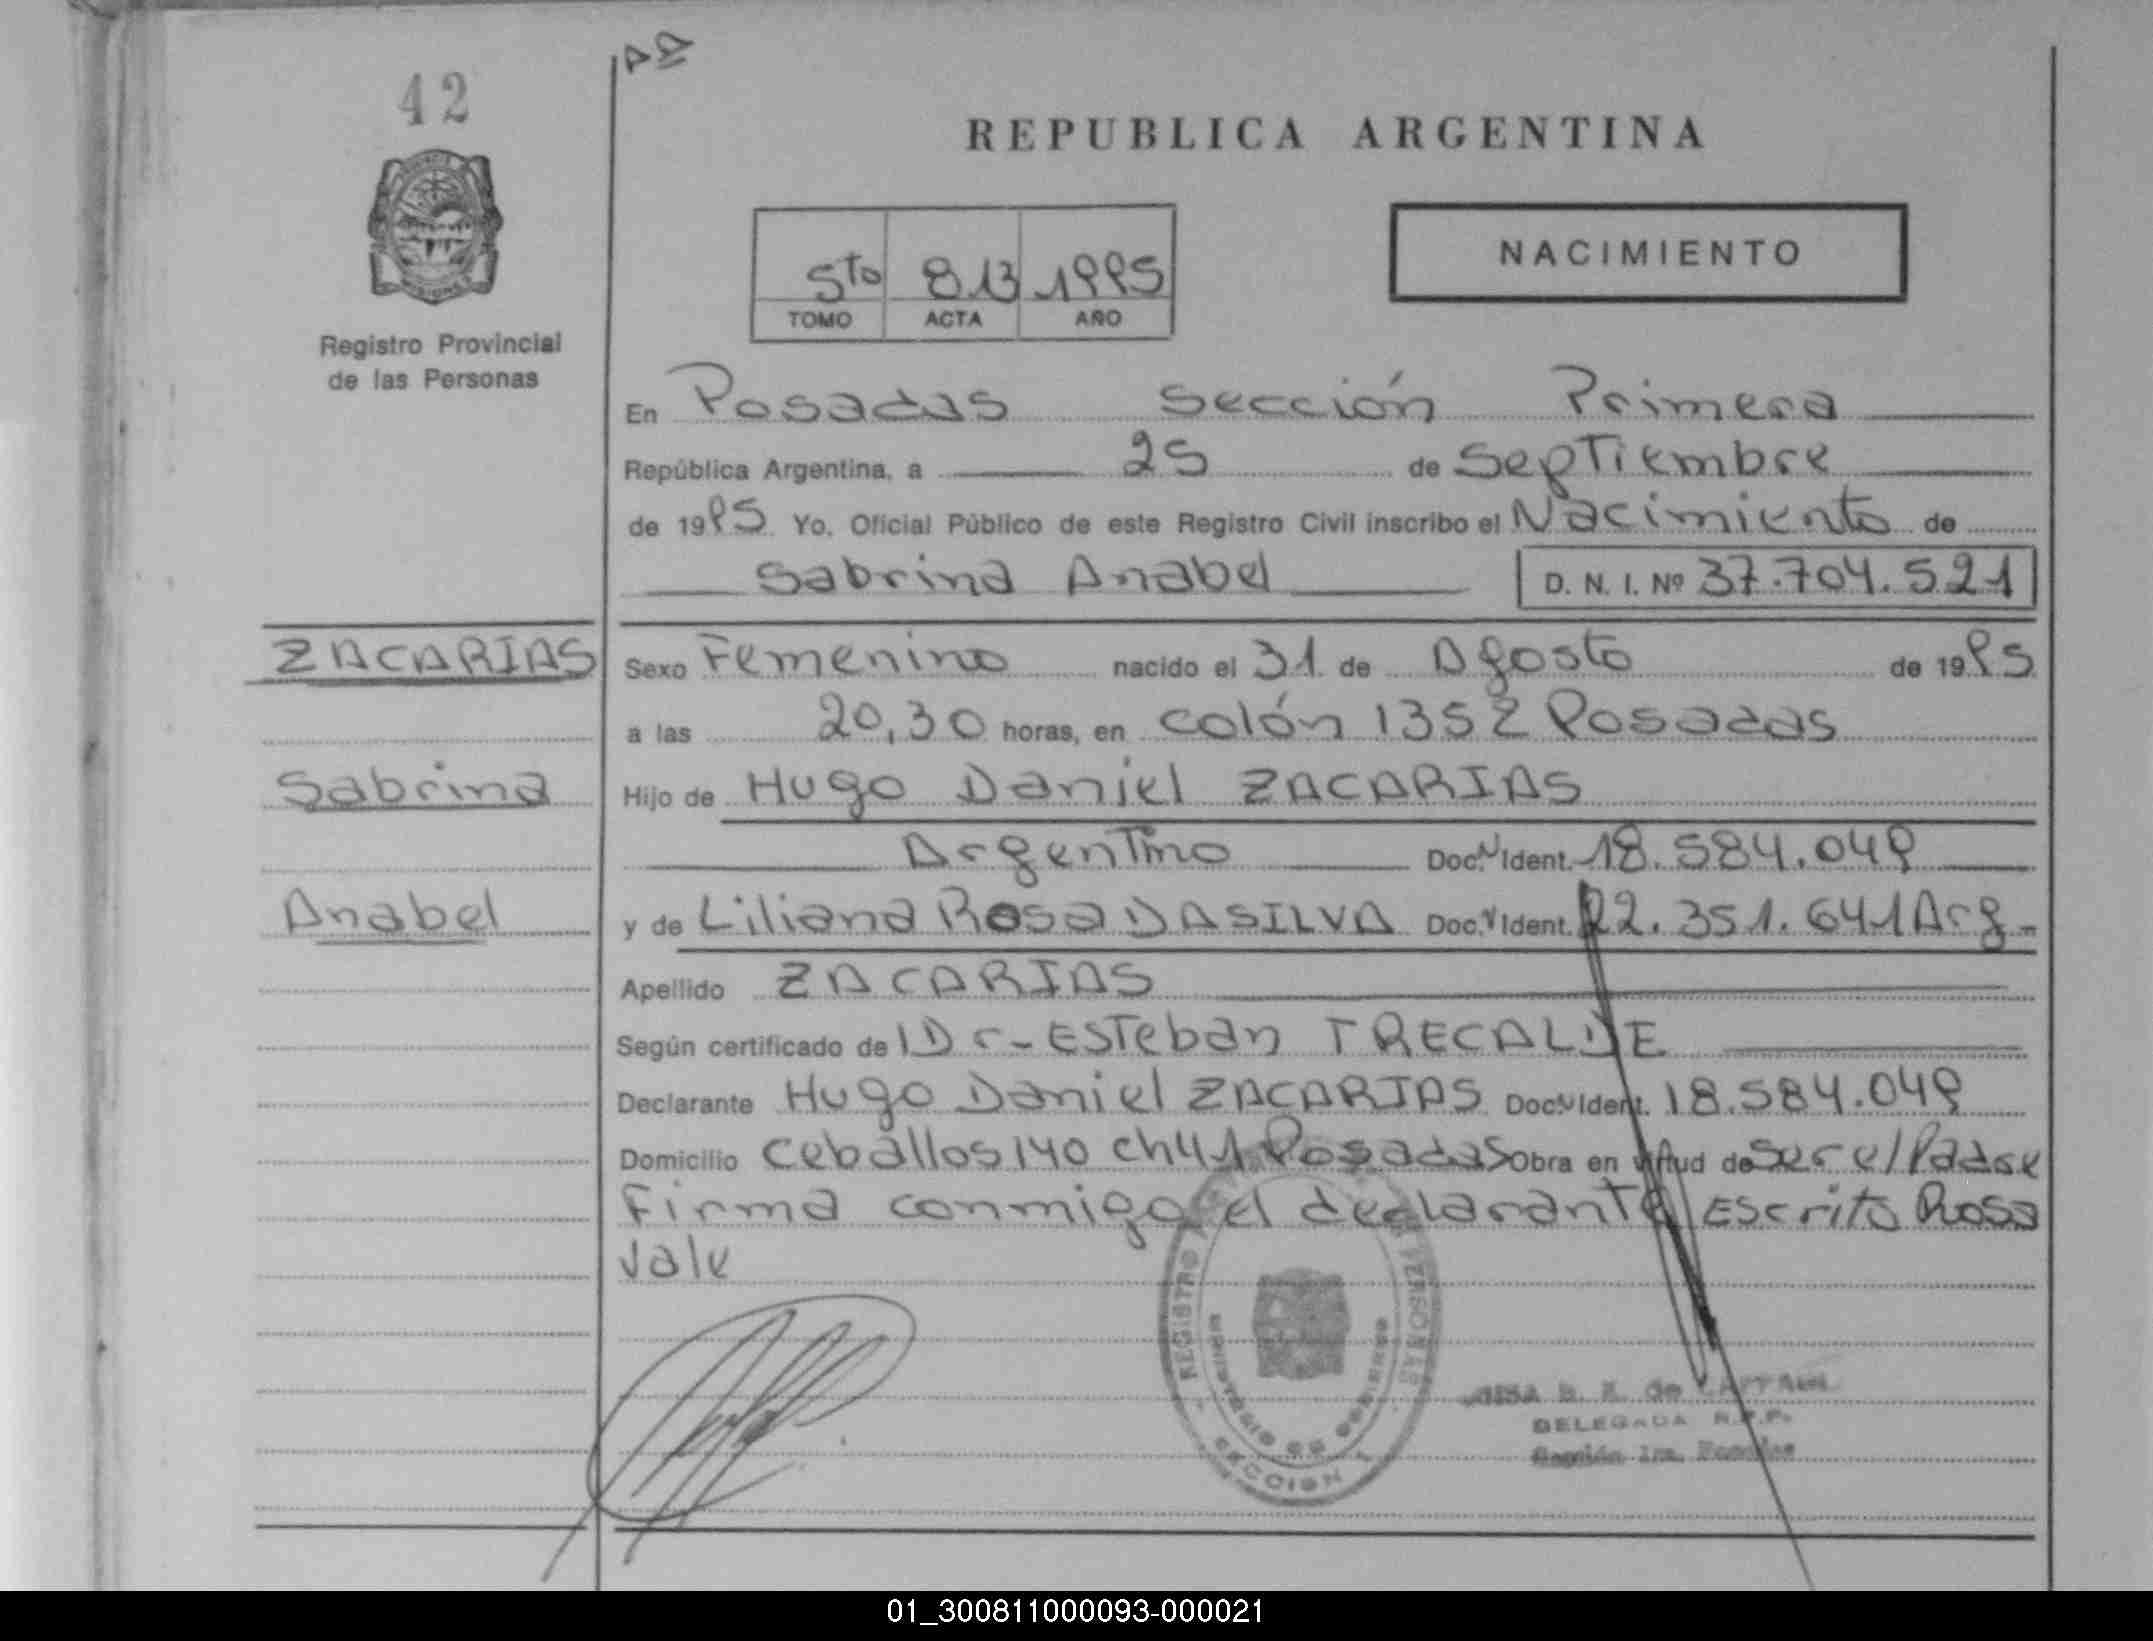 42
REPUBLICA ARGENTINA
NACIMIENTO
5to 813 1995
TOMO ACTA AÑO
Registro Provincial
de las Personas
En Posadas Sección Primera
República Argentina, a 25 de Septiembre
de 1995 Yo, Oficial Público de este Registro Civil inscribo el Nacimiento de
Sabrina Anabel D. N. I. Nº 37.704.521
ZACARIAS
Sexo Femenino nacido el 31 de Agosto de 1995
a las 20,30 horas, en colón 1352 Posadas
Sabrina
Hijo de Hugo Daniel ZACARIAS
Argentino Doc. Ident. 18.584.049
Anabel
y de Liliana Rosa DASILVA Doc. Ident. 22.351.641 Arg.-
Apellido ZACARIAS
Según certificado de Dr- Esteban TRECALDE
Declarante Hugo Daniel ZACARIAS Doc. Ident. 18.584.049
Domicilio Ceballos 140 ch 41 Posadas Obra en virtud de ser el Padre
Firma conmigo el declarante Escrito Rosa
vale
REGISTRO DE LAS PERSONAS
MINISTERIO DE GOBIERNO
SECCION 1
B. Z. de
DELEGADA R.P.P.
Sección 1ra. Posadas
01_300811000093-000021